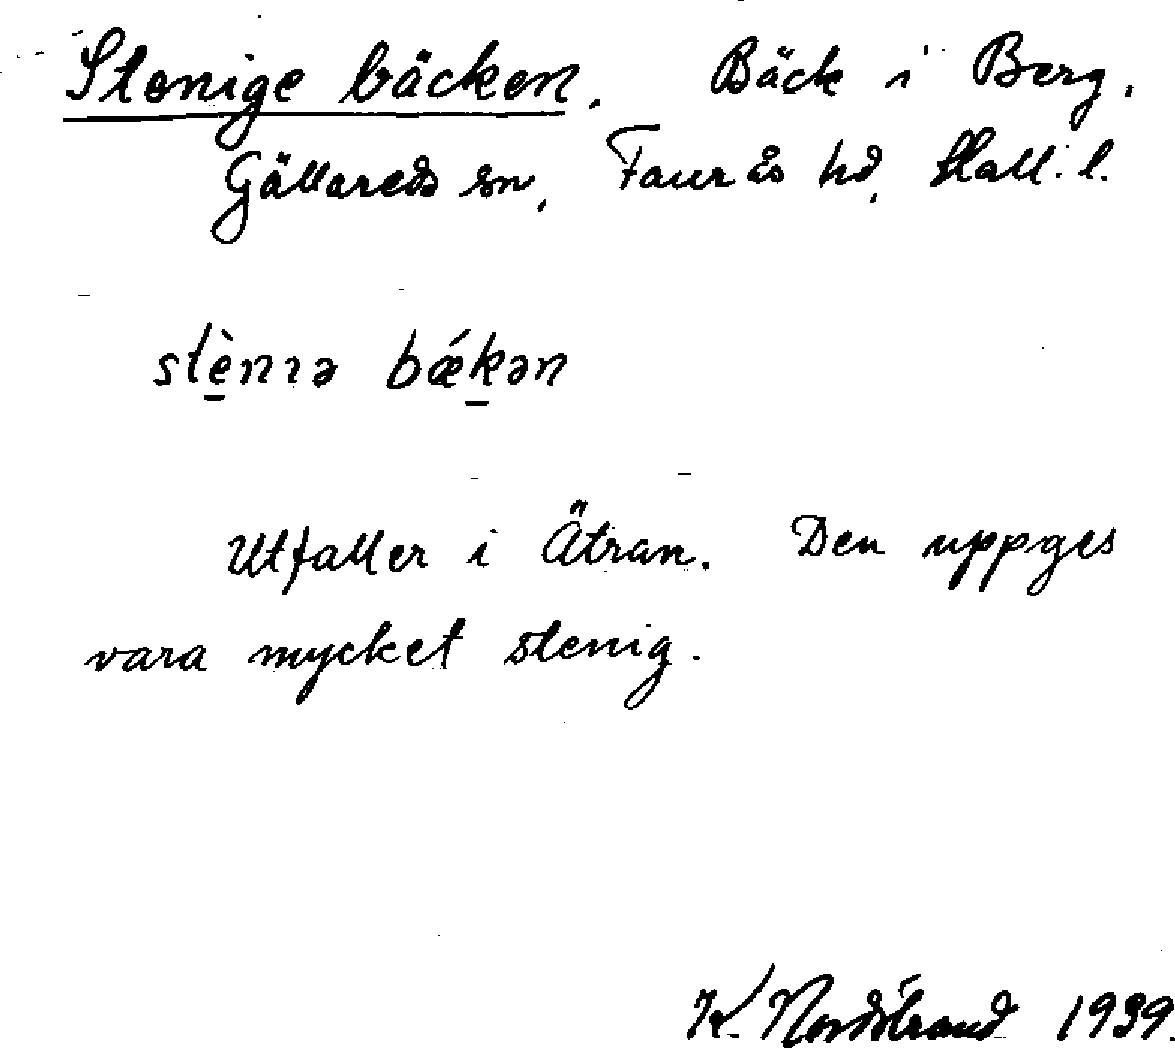 Stenige bäcken. Bäck i Berg,
Gällareds sn, Faurås hd, Hall. l.
stè̠nıə bǽk̠ən
Utfaller i Ätran. Den uppges
vara mycket stenig.
K. Nordstrand 1939.